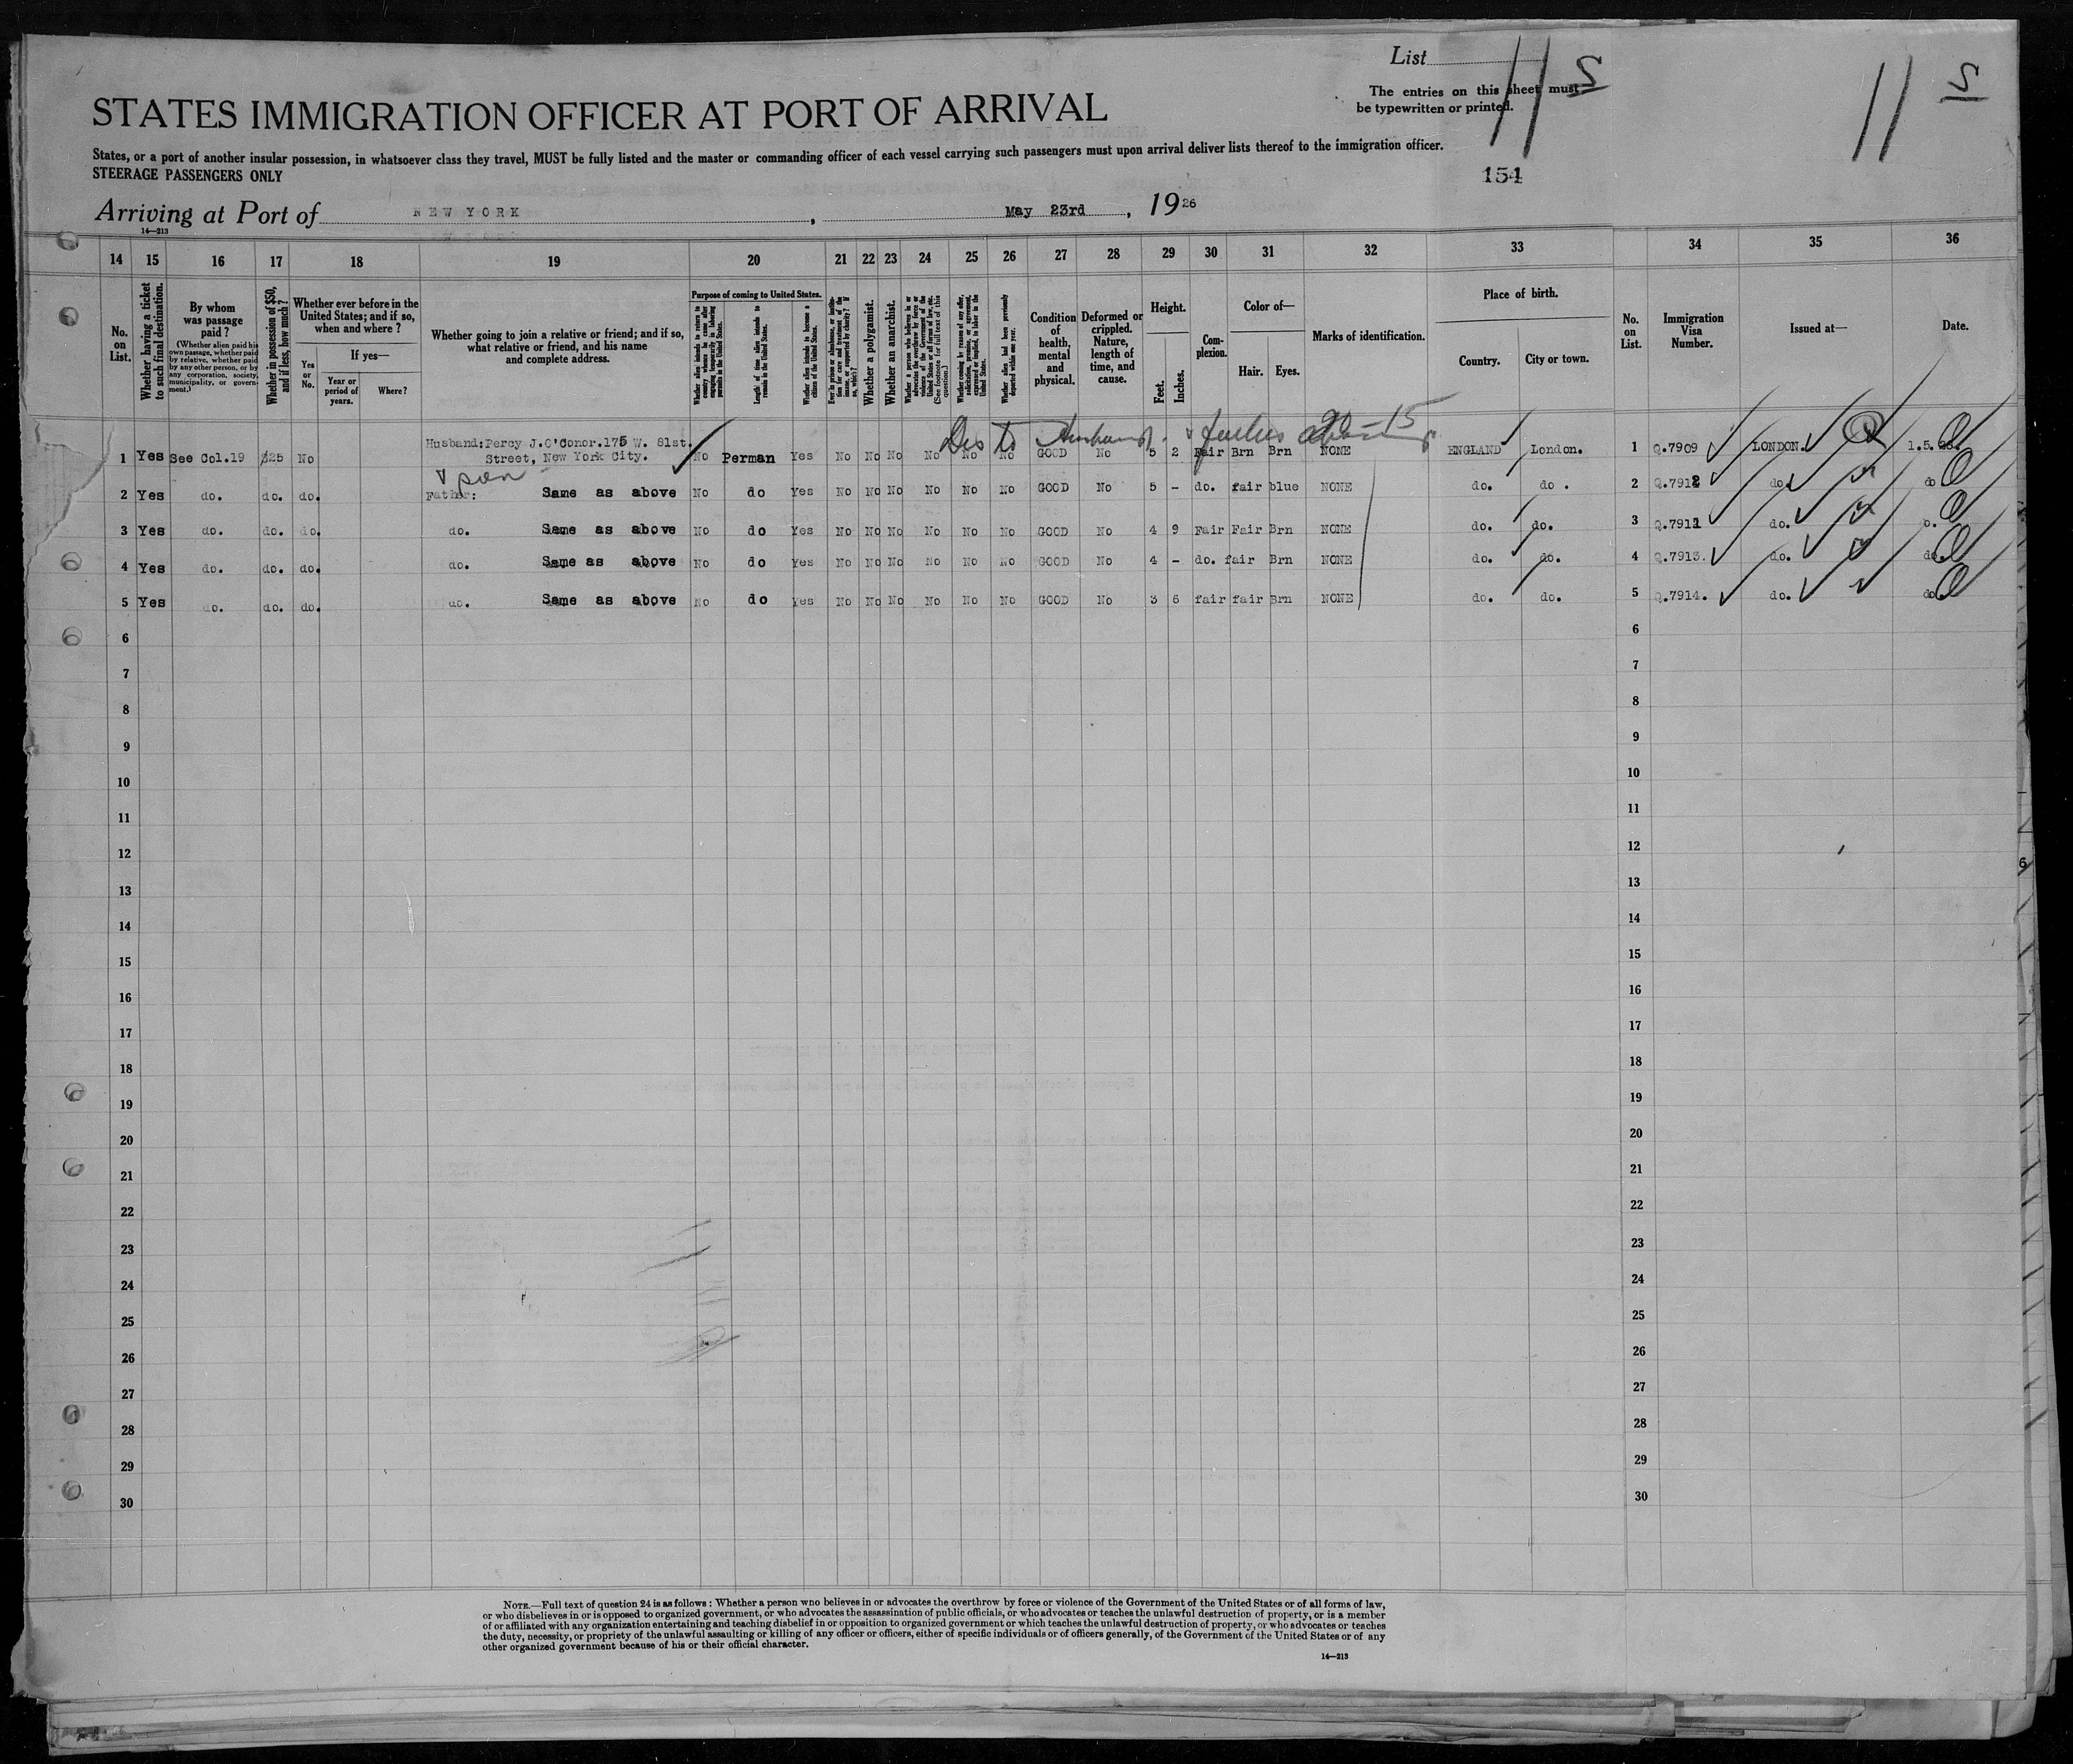 List
The entries on this sheet must
be typewritten or printed.
11 S
11 S
STATES IMMIGRATION OFFICER AT PORT OF ARRIVAL
States, or a port of another insular possession, in whatsoever class they travel, MUST be fully listed and the master or commanding officer of each vessel carrying such passengers must upon arrival deliver lists thereof to the immigration officer.
STEERAGE PASSENGERS ONLY
154
Arriving at Port of NEW YORK, May 23rd, 1926
14—213
14 15 16 17 18 19 20 21 22 23 24 25 26 27 28 29 30 31 32 33 34 35 36
No. on List.
Whether having a ticket to such final destination.
By whom was passage paid?
(Whether alien paid his own passage, whether paid by relative, whether paid by any other person, or by any corporation, society, municipality, or government.)
Whether in possession of $50, and if less, how much?
Whether ever before in the United States; and if so, when and where?
Yes or No.
If yes—
Year or period of years.
Where?
Whether going to join a relative or friend; and if so, what relative or friend, and his name and complete address.
Purpose of coming to United States.
Whether alien intends to return to country whence he came after engaging temporarily in laboring pursuits in the United States.
Length of time alien intends to remain in the United States.
Whether alien intends to become a citizen of the United States.
Ever in prison or almshouse, or institution for care and treatment of the insane, or supported by charity? If so, which?
Whether a polygamist.
Whether an anarchist.
Whether a person who believes in or advocates the overthrow by force or violence of the Government of the United States or all forms of law, etc. (See footnote for full text of this question.)
Whether coming by reason of any offer, solicitation, promise, or agreement, expressed or implied, to labor in the United States.
Whether alien had been previously deported within one year.
Condition of health, mental and physical.
Deformed or crippled. Nature, length of time, and cause.
Height.
Feet.
Inches.
Complexion.
Color of—
Hair.
Eyes.
Marks of identification.
Place of birth.
Country.
City or town.
No. on List.
Immigration Visa Number.
Issued at—
Date.
Dis to Husband & father
Husband: Percy J.O'Conor.175 W. 81st.
1 Yes See Col.19 $25 No Street, New York City. No Perman Yes No No No No No No GOOD No 5 2 Fair Brn Brn NONE ENGLAND London. 1 Q.7909 LONDON. 1.5.26.
& son
2 Yes do. do. do. Father: Same as above No do Yes No No No No No No GOOD No 5 - do. fair blue NONE do. do. 2 Q.7912 do. do
3 Yes do. do. do. do. Same as above No do Yes No No No No No No GOOD No 4 9 Fair Fair Brn NONE do. do. 3 Q.7911 do. o.
4 Yes do. do. do. do. Same as above No do Yes No No No No No No GOOD No 4 - do. fair Brn NONE do. do. 4 Q.7913. do. do.
5 Yes do. do. do. do. Same as above No do Yes No No No No No No GOOD No 3 6 fair fair Brn NONE do. do. 5 Q.7914. do. do
6 6
7 7
8 8
9 9
10 10
11 11
12 12
13 13
14 14
15 15
16 16
17 17
18 18
19 19
20 20
21 21
22 22
23 23
24 24
25 25
26 26
27 27
28 28
29 29
30 30
NOTE.—Full text of question 24 is as follows: Whether a person who believes in or advocates the overthrow by force or violence of the Government of the United States or of all forms of law,
or who disbelieves in or is opposed to organized government, or who advocates the assassination of public officials, or who advocates or teaches the unlawful destruction of property, or is a member
of or affiliated with any organization entertaining and teaching disbelief in or opposition to organized government or which teaches the unlawful destruction of property, or who advocates or teaches
the duty, necessity, or propriety of the unlawful assaulting or killing of any officer or officers, either of specific individuals or of officers generally, of the Government of the United States or of any
other organized government because of his or their official character.
14—213